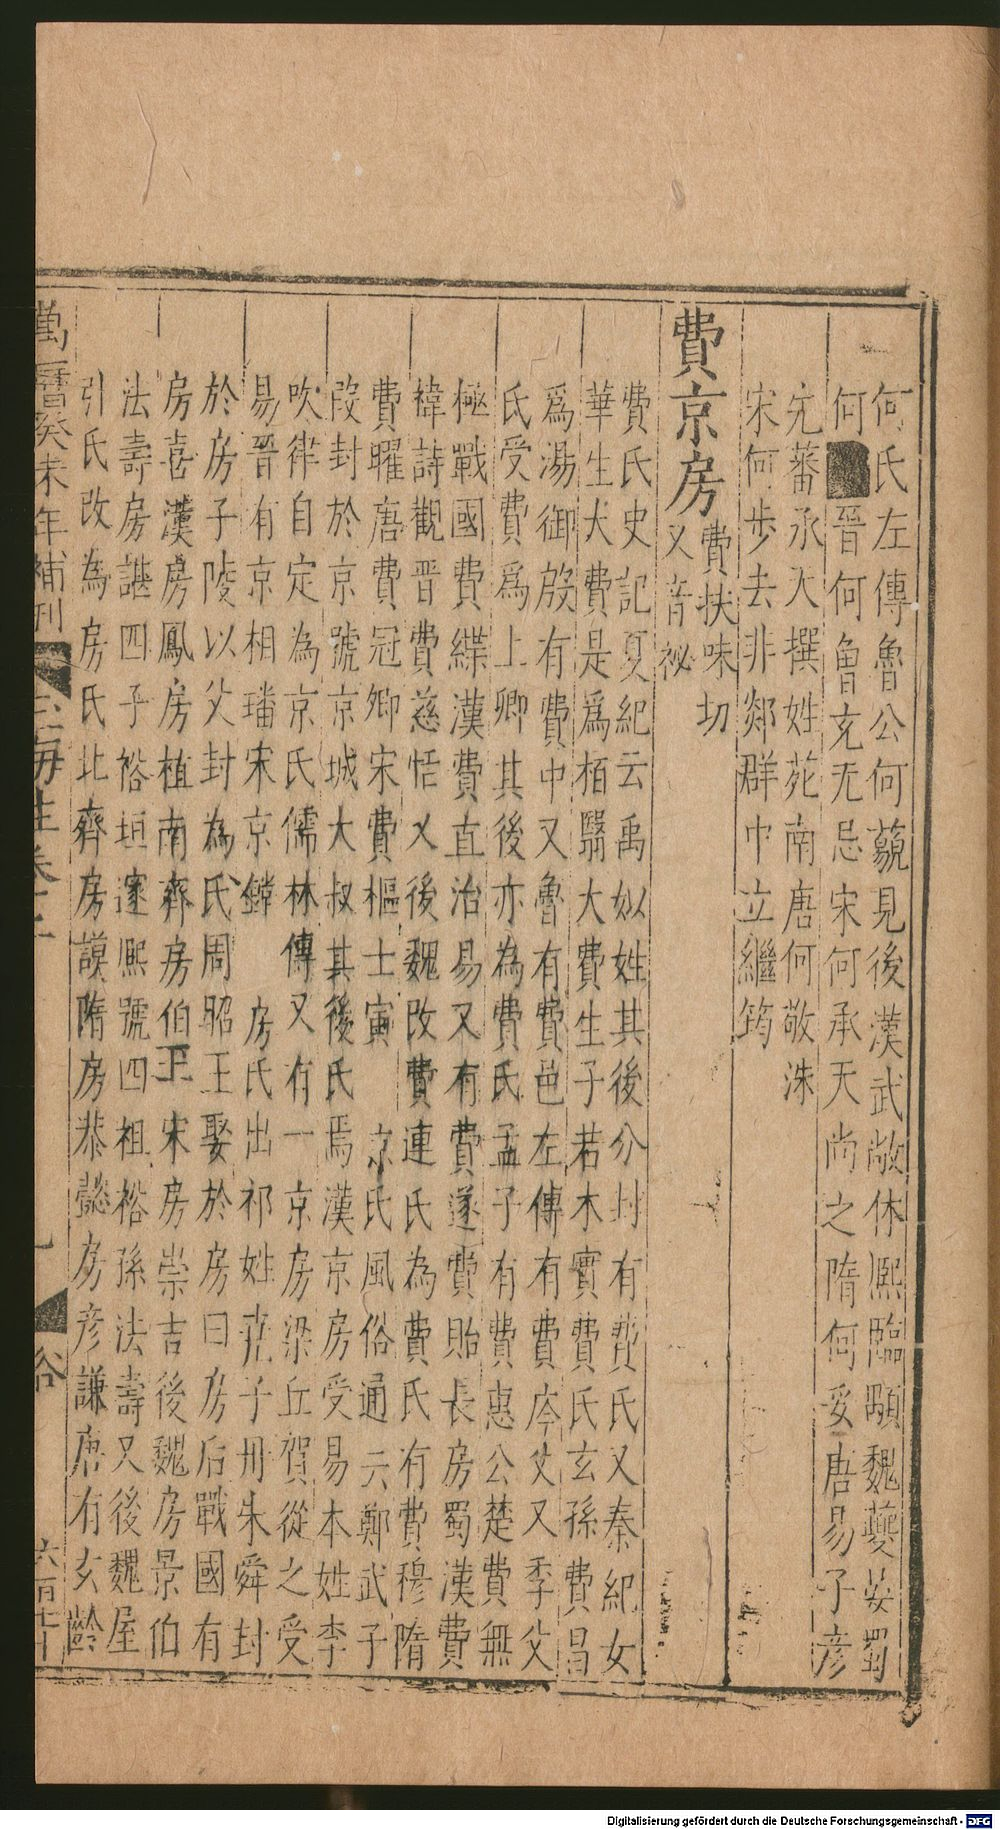 何氏左傳魯公何藐見後漢武敞休熈臨顒魏夔晏蜀
何晉何曾充无忌宋何承天尚之隋何妥唐易于彦
先蕃承天撰姓苑南唐何敬洙
宋何步去非郯群中立繼筠
費京房
費扶味切
又音祕
費氏史記夏紀云禹姒姓其後分封有費氏又秦紀女
華生大費是爲栢翳大費生子若木實費氏玄孫費昌
爲湯御殷有費中又魯有費邑左傳有費庈父又季父
氏受費爲上卿其後亦為費氏孟子有費惠公楚費無
極戰國費緤漢費直治易又有費遂費貽長房蜀漢費
禕詩觀晋費慈恬又後魏改費連氏為費氏有費穆隋
費曜唐費冠卿宋費樞士寅
京氏風俗通云鄭武子
段封於京號京城大叔其後氏焉漢京房受易本姓李
吹律自定為京氏儒林傳又有一京房梁丘賀從之受
易晉有京相璠宋京鏜
房氏出祁姓尭子丹朱舜封
於房子陵以父封為氏周昭王娶於房曰房后戰國有
房喜漢房鳳房植南齊房伯玉宋房崇吉後魏房景伯
法壽房諶四子裕垣邃熈號四祖裕孫法壽又後魏屋
引氏改為房氏北齊房謨隋房恭懿房彦謙唐有玄齡
萬曆癸未年補刊
六百七十
Digitalisierung gefördert durch die Deutsche Forschungsgemeinschaft - DFG